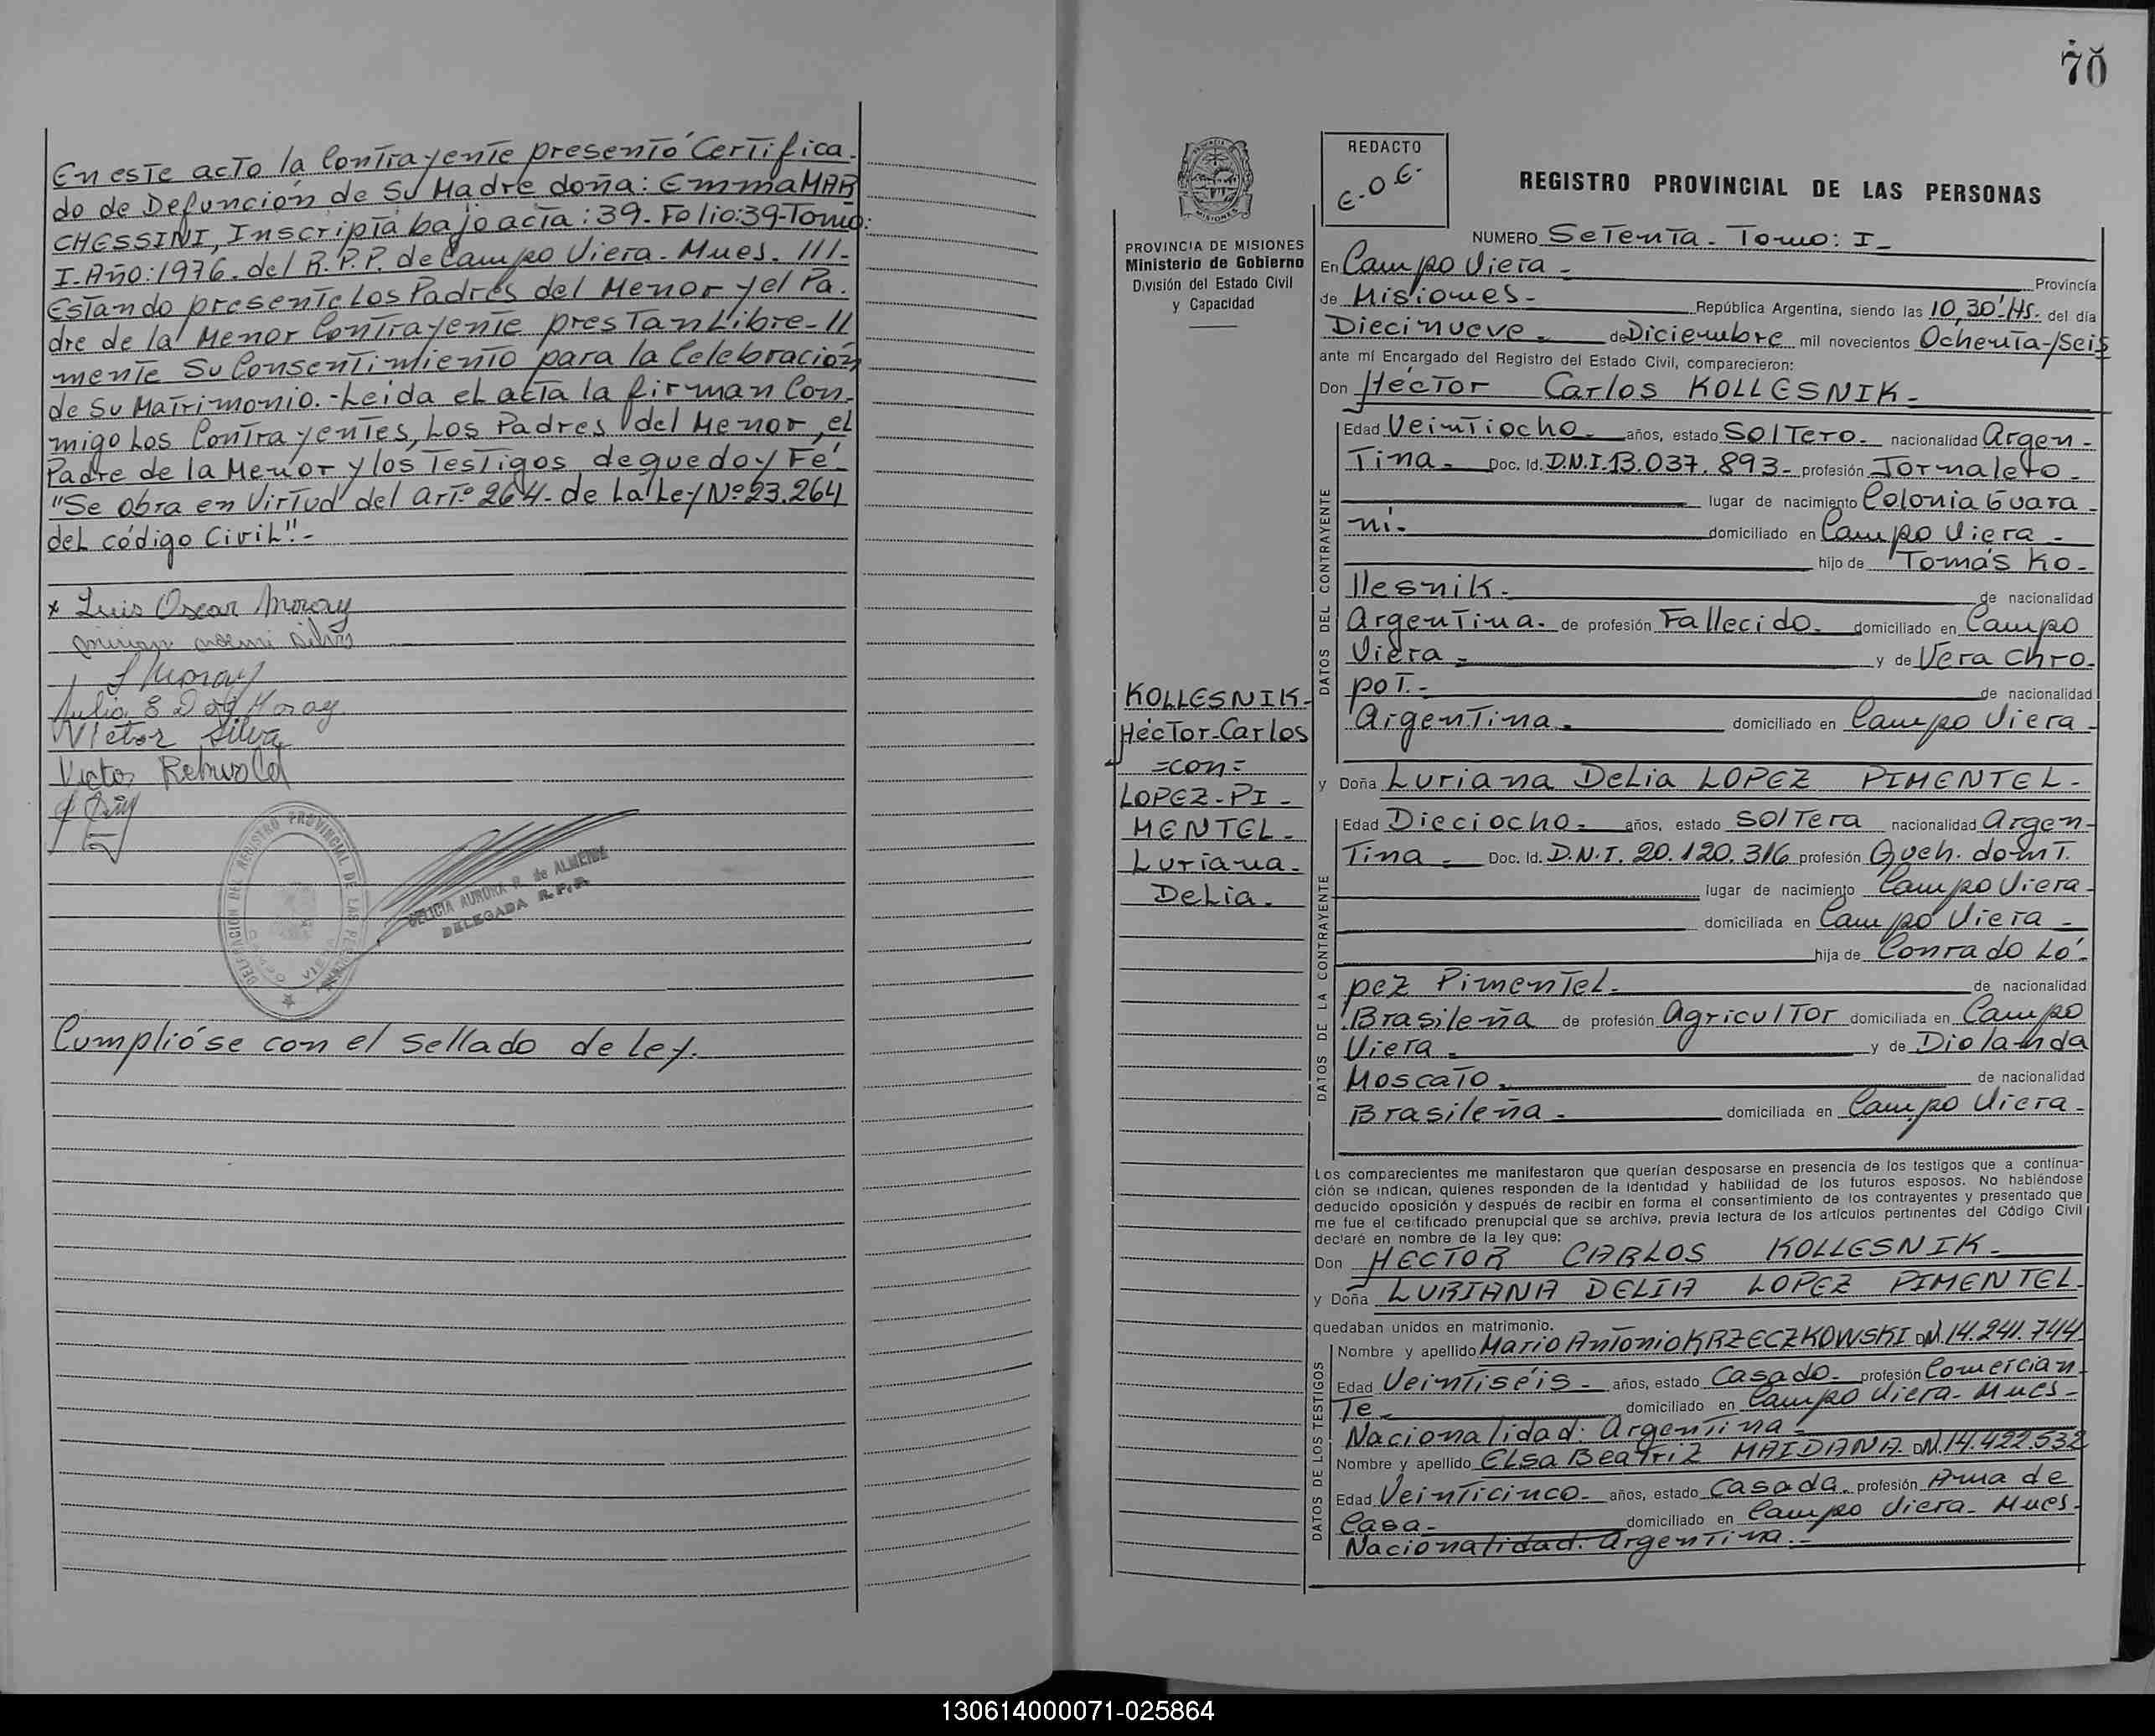 En este acto la Contrayente presentó Certifica-
do de Defunción de Su Madre doña: Emma MAR
CHESSINI, Inscripta bajo acta: 39- Folio: 39- Tomo:
I- Año: 1976- del R.P.P. de Campo Viera- Mnes. III-
Estando presente Los Padres del Menor y el Pa-
dre de la Menor Contrayente prestan Libre- //
mente Su Consentimiento para la Celebración
de Su Matrimonio.- Leída el acta la firman Con-
migo Los Contrayentes, Los Padres del Menor, el
Padre de la Menor y los Testigos, de que doy Fé-
"Se obra en Virtud del artº 264- de La Ley Nº 23.264
del código Civil"-
x Luis Oscar Moray
Moray
Victor Silva
Victor
DELEGACION DEL REGISTRO PROVINCIAL DE LAS PERSONAS
DELICIA AURORA R. de ALMEIDE
DELEGADA R.P.P.
Cumplióse con el sellado de ley.
70
PROVINCIA DE MISIONES
Ministerio de Gobierno
División del Estado Civil
y Capacidad
KOLLESNIK-
Héctor-Carlos
=con=
LOPEZ-PI-
MENTEL-
Luriana-
Delia-
REDACTO
E.O.E.
REGISTRO PROVINCIAL DE LAS PERSONAS
NUMERO Setenta- Tomo: I-
En Campo Viera- Provincia
de Misiones- República Argentina, siendo las 10,30'Hs. del día
Diecinueve- de Diciembre mil novecientos Ochenta y Seis
ante mí Encargado del Registro del Estado Civil, comparecieron:
Don Héctor Carlos KOLLESNIK-
DATOS DEL CONTRAYENTE
Edad Veintiocho- años, estado Soltero- nacionalidad Argen-
tina- Doc. Id. D.N.I. 13.037.893- profesión Jornalero-
lugar de nacimiento Colonia Guara-
ní- domiciliado en Campo Viera-
hijo de Tomás Ko-
llesnik- de nacionalidad
Argentina- de profesión Fallecido- domiciliado en Campo
Viera- y de Vera Chro-
pot.- de nacionalidad
Argentina- domiciliado en Campo Viera-
y Doña Luriana Delia LOPEZ PIMENTEL-
DATOS DE LA CONTRAYENTE
Edad Dieciocho- años, estado Soltera nacionalidad Argen-
tina- Doc. Id. D.N.I. 20.120.316 profesión Queh. domt.
lugar de nacimiento Campo Viera-
domiciliada en Campo Viera-
hija de Conrado Ló-
pez Pimentel- de nacionalidad
Brasileña de profesión Agricultor domiciliada en Campo
Viera- y de Diolanda
Moscato- de nacionalidad
Brasileña- domiciliada en Campo Viera-
Los comparecientes me manifestaron que querían desposarse en presencia de los testigos que a continua-
ción se indican, quienes responden de la identidad y habilidad de los futuros esposos. No habiéndose
deducido oposición y después de recibir en forma el consentimiento de los contrayentes y presentado que
me fue el certificado prenupcial que se archiva, previa lectura de los artículos pertinentes del Código Civil
declaré en nombre de la ley que:
Don HECTOR CARLOS KOLLESNIK-
y Doña LURIANA DELIA LOPEZ PIMENTEL-
quedaban unidos en matrimonio.
DATOS DE LOS TESTIGOS
Nombre y apellido Mario Antonio KRZECZKOWSKI DNI. 14.241.744
Edad Veintiséis- años, estado Casado- profesión Comercian-
te- domiciliado en Campo Viera- Mnes-
Nacionalidad: Argentina-
Nombre y apellido Elsa Beatriz MAIDANA DNI. 14.422.532
Edad Veinticinco- años, estado Casada- profesión Ama de
Casa- domiciliado en Campo Viera- Mnes-
Nacionalidad: Argentina.-
130614000071-025864